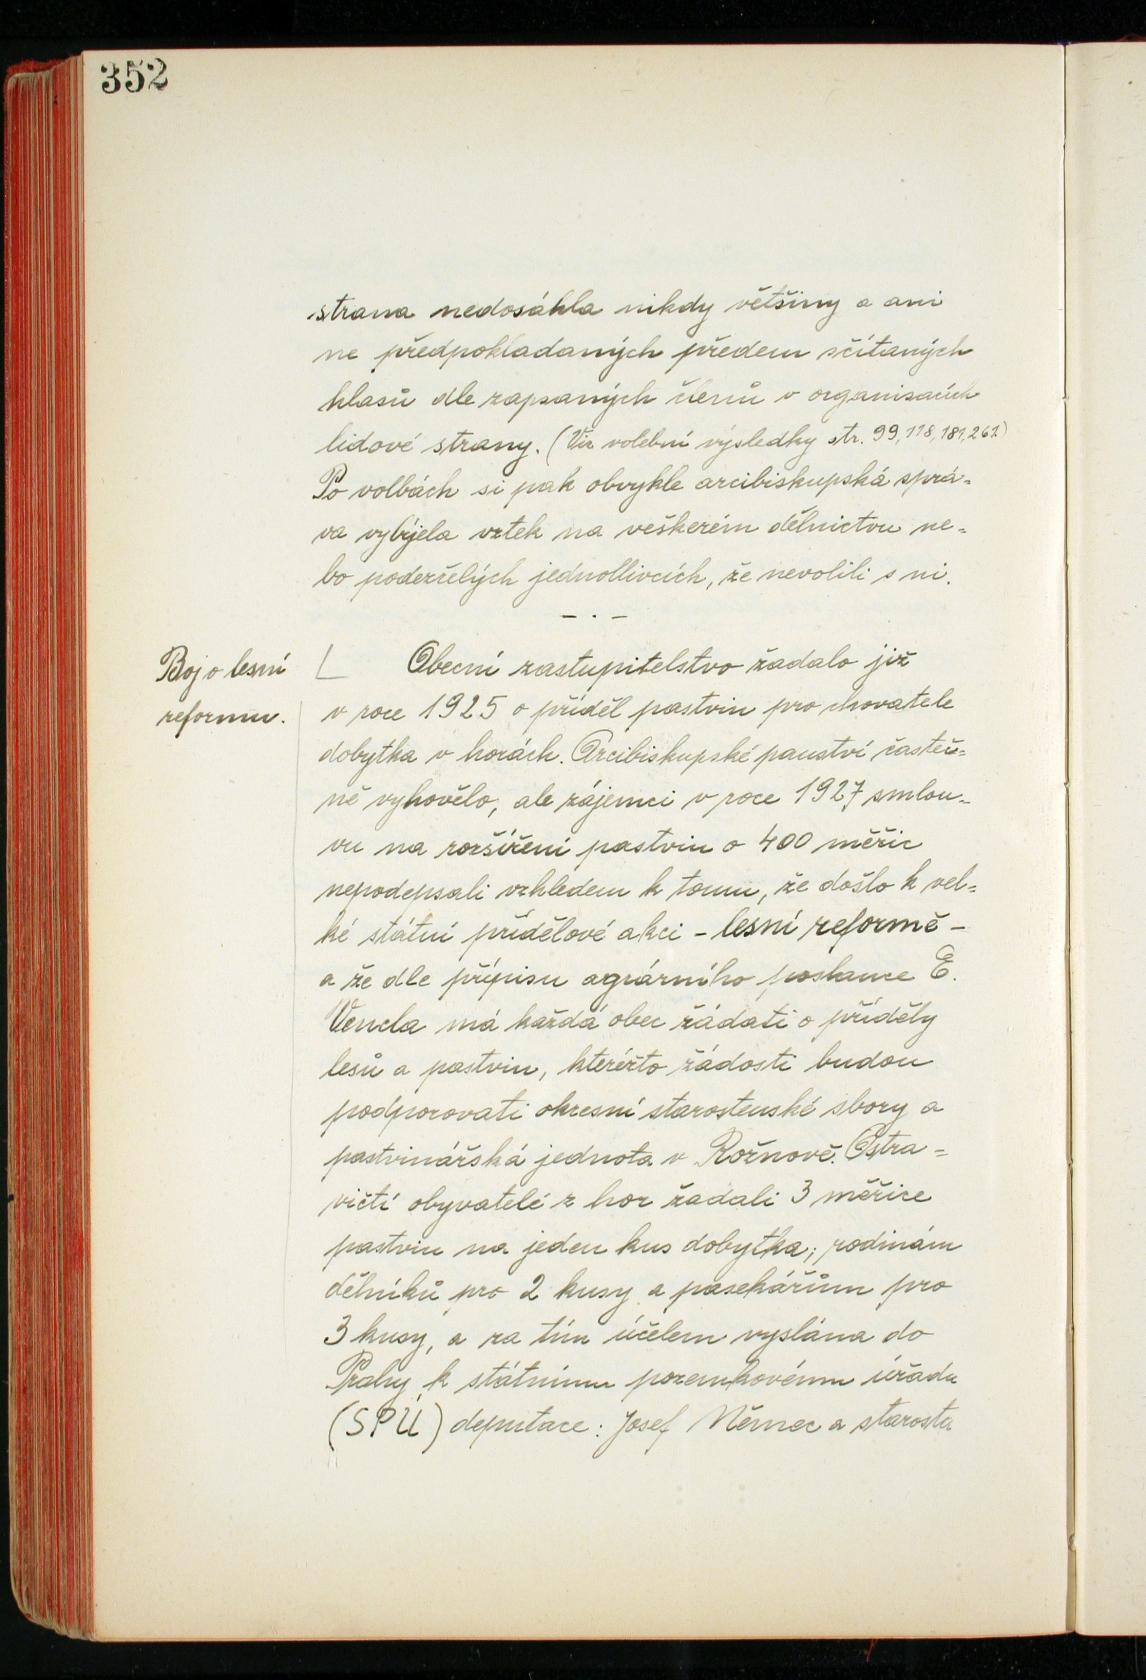 352
strana nedosáhla nikdy většiny a ani
ne předpokládaných předem sčítaných
hlasů dle zapsaných členů v organisacích
lidové strany. (Viz volební výsledky str. 99, 118, 181, 262)
Po volbách si pak obvykle arcibiskupská sprá-
va vybíjela vztek na veškerém dělnictvu ne-
bo podezřelých jednotlivcích, že nevolili s ni.
— · —
Boj o lesní
reformu.
Obecní zastupitelstvo žádalo již
v roce 1925 o příděl pastvin pro chovatele
dobytka v horách. Arcibiskupské panství částeč=
ně vyhovělo, ale zájemci v roce 1927 smlou-
vu na rozšíření pastvin o 400 měřic
nepodepsali vzhledem k tomu, že došlo k vel=
ké státní přídělové akci – lesní reformě –
a že dle přípisu agrárního poslance E.
Vencla má každá obec žádati o příděly
lesů a pastvin, kteréžto žádosti budou
podporovati okresní starostenské sbory a
pastvinářská jednota v Rožnově. Ostra=
vičtí obyvatelé z hor žádali 3 měřice
pastvin na jeden kus dobytka; rodinám
dělníků pro 2 kusy a pasekářům pro
3 kusy, a za tím účelem vyslána do
Prahy k státnímu pozemkovému úřadu
(SPÚ) deputace: Josef Němec a starosta